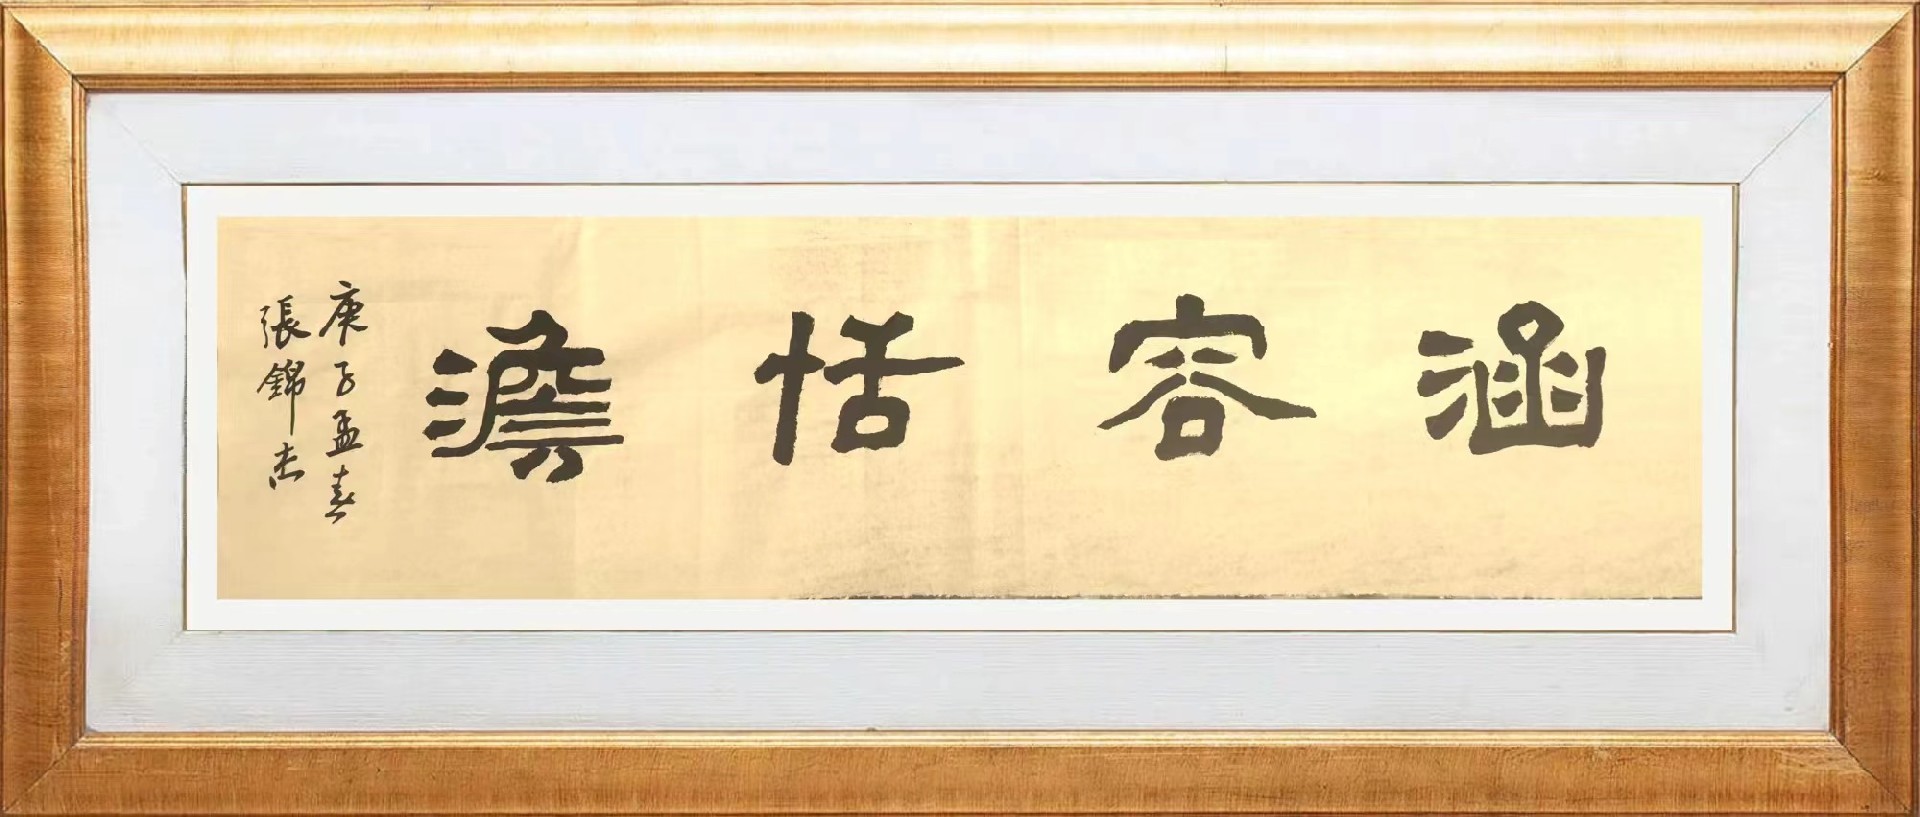 涵容恬澹
庚子孟春
張錦杰